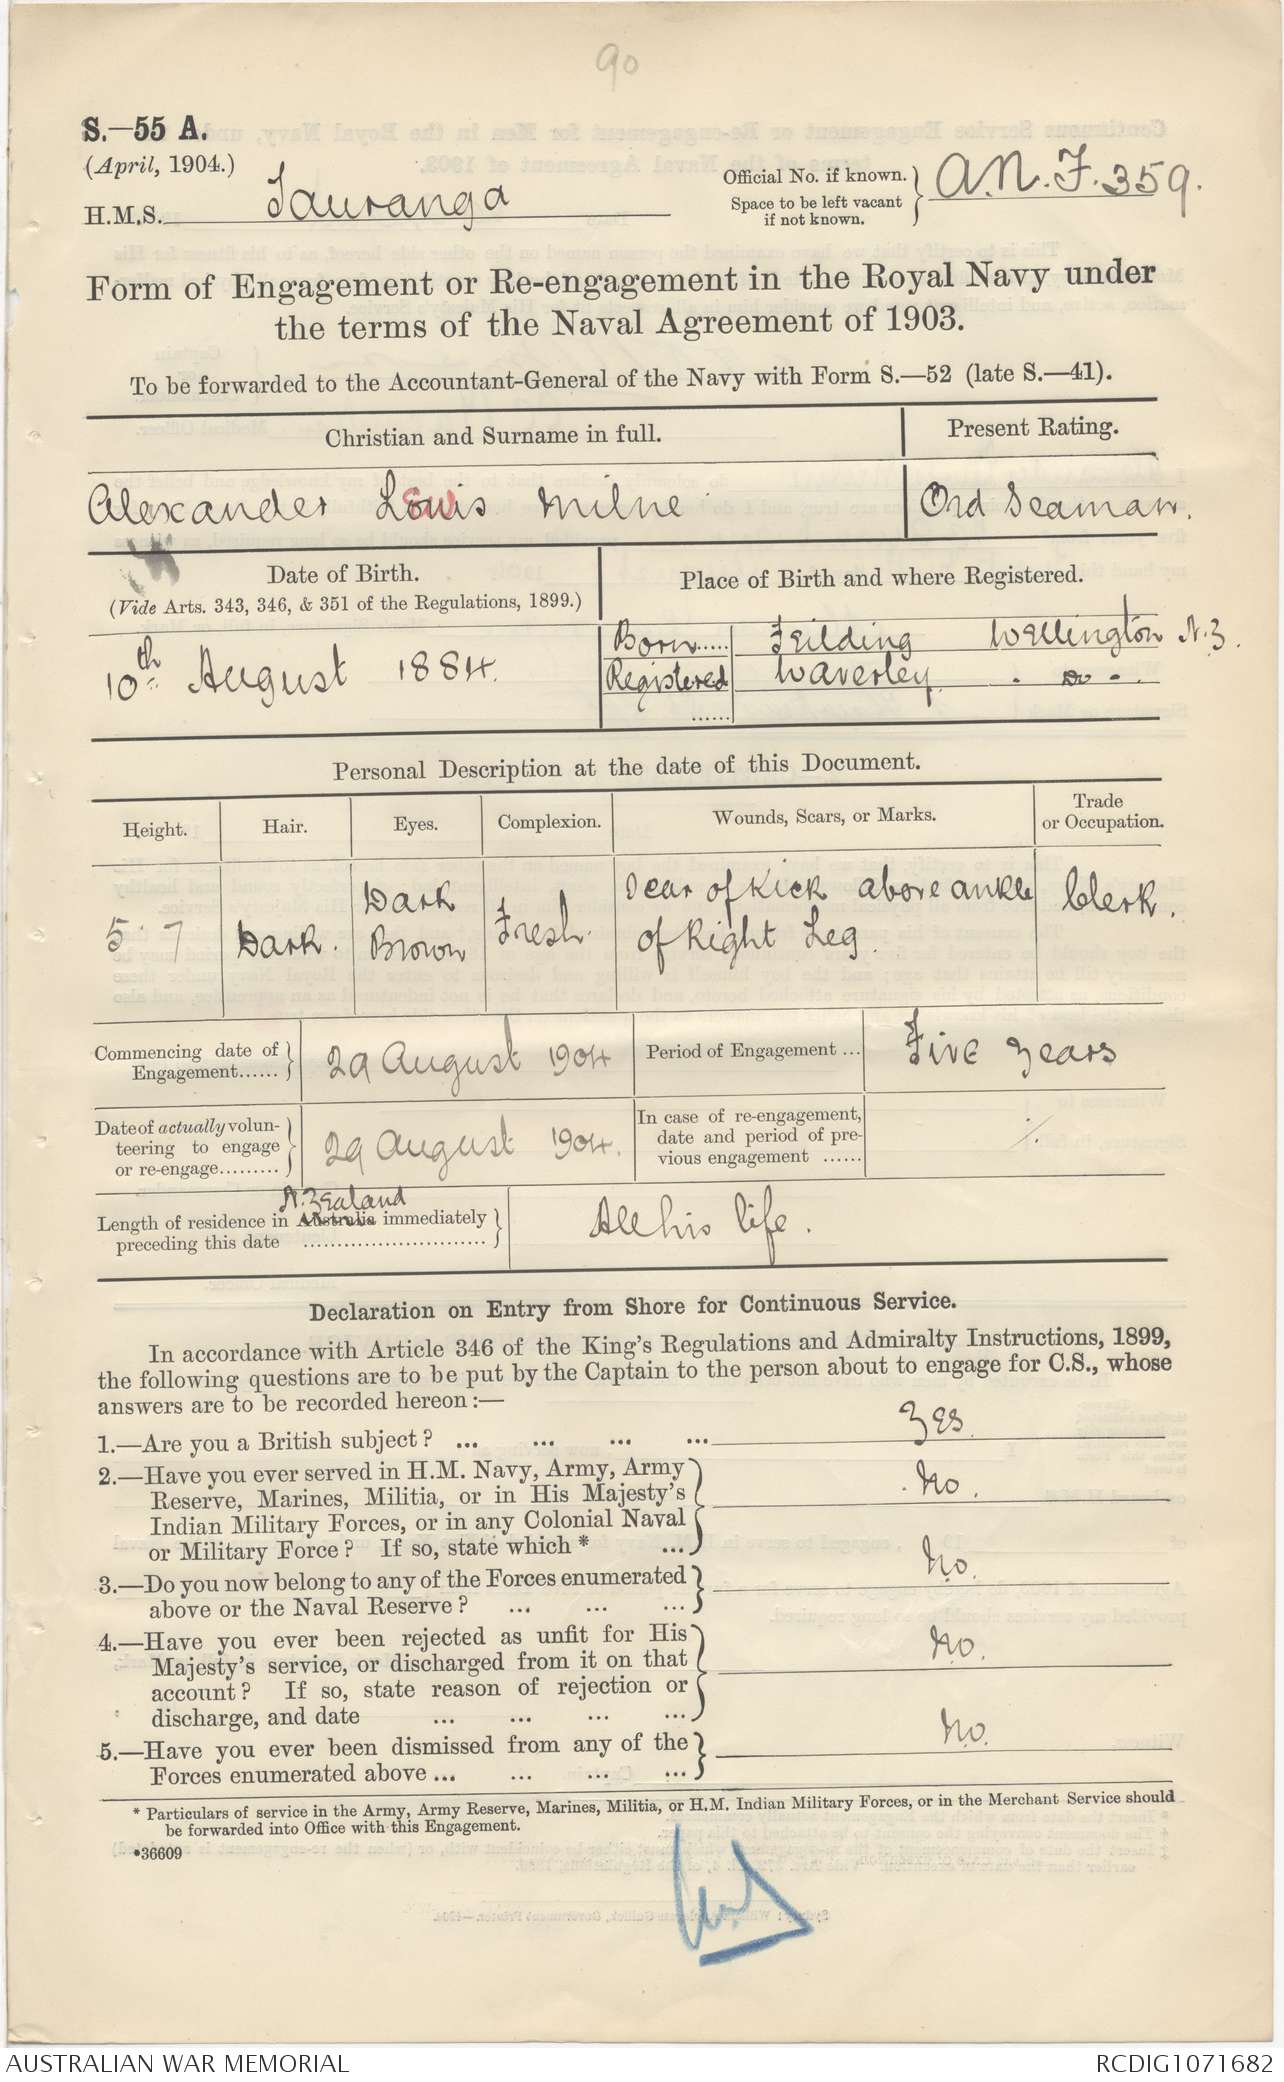 90
S.—55 A.
(April, 1904.)
H.M.S. Tauranga
Official No. if known.
Space to be left vacant
if not known.
A.N.F. 359.
Form of Engagement or Re-engagement in the Royal Navy under
the terms of the Naval Agreement of 1903.
To be forwarded to the Accountant-General of the Navy with Form S.—52 (late S.—41).
Christian and Surname in full.
Present Rating.
Alexander Lewis Milne
Ord Seaman.
Date of Birth.
(Vide Arts. 343, 346, & 351 of the Regulations, 1899.)
Place of Birth and where Registered.
10th August 1884.
Born..... Feilding Wellington N.Z.
Registered Waverley - Do -.
......
Personal Description at the date of this Document.
Height. Hair. Eyes. Complexion. Wounds, Scars, or Marks. Trade
or Occupation.
5 7 Dark. Dark
Brown Fresh. Scar of Kick above ankle
of Right Leg. Clerk.
Commencing date of
Engagement...... 29 August 1904
Period of Engagement ... Five Years
Date of actually volun-
teering to engage
or re-engage......... 29 August 1904.
In case of re-engagement,
date and period of pre-
vious engagement ......
N. Zealand
Length of residence in Australia immediately
preceding this date ........................... All his life.
Declaration on Entry from Shore for Continuous Service.
In accordance with Article 346 of the King's Regulations and Admiralty Instructions, 1899,
the following questions are to be put by the Captain to the person about to engage for C.S., whose
answers are to be recorded hereon :—
1.—Are you a British subject ? ... ... ... ... Yes.
2.—Have you ever served in H.M. Navy, Army, Army
Reserve, Marines, Militia, or in His Majesty's
Indian Military Forces, or in any Colonial Naval
or Military Force ? If so, state which * ... No.
3.—Do you now belong to any of the Forces enumerated
above or the Naval Reserve ? ... ... ... No.
4.—Have you ever been rejected as unfit for His
Majesty's service, or discharged from it on that
account ? If so, state reason of rejection or
discharge, and date ... ... ... ... No.
5.—Have you ever been dismissed from any of the
Forces enumerated above ... ... ... ... No.
* Particulars of service in the Army, Army Reserve, Marines, Militia, or H.M. Indian Military Forces, or in the Merchant Service should
be forwarded into Office with this Engagement.
*36609
AUSTRALIAN WAR MEMORIAL
RCDIG1071682